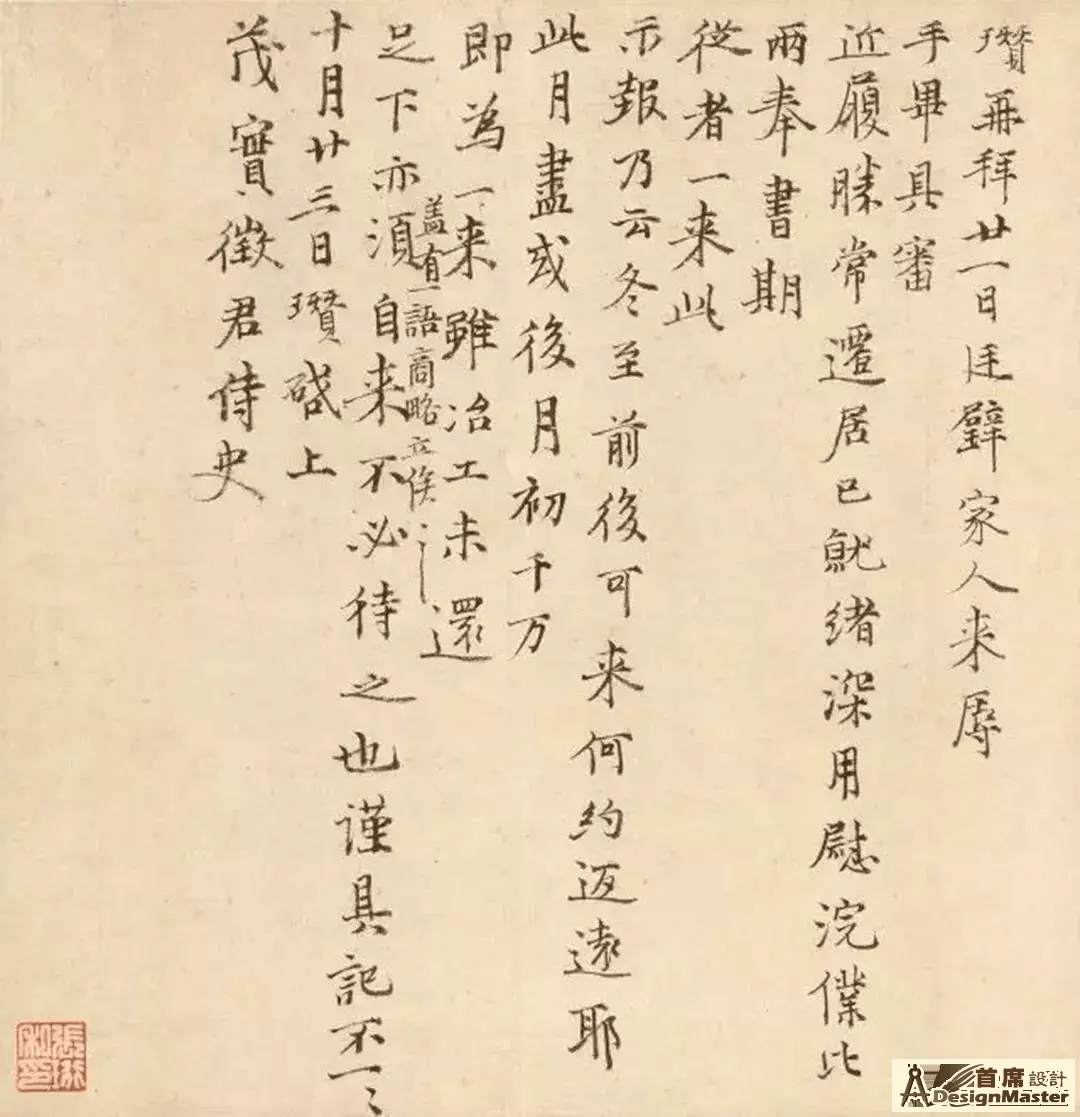 瓚再拜廿一日廷璧家人来辱
手畢具審
近履勝常遷居已就緒深用慰浣僕比
兩奉書期
從者一来此
示報乃云冬至前後可来何約迈遠耶
此月盡或後月初千万
即為一来雖冶工未還
盖有一語商略立俟之
足下亦須自来不必待之也謹具記不一〻
十月廿三日瓚啓上
茂實徵君侍史
首席設計
DesignMaster